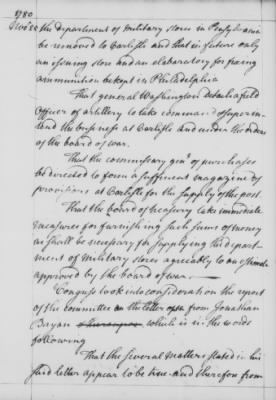 1780
Nov. the department of military stores in Pensylvania
be removed to Carlisle and that in future only
an issuing store and an elaboratory for fixing
ammunition be kept in Philadelphia
That general Washington detach a field
Officer of artillery to take command & superin-
tend the business at Carlisle and under the orders
of the board of war.
That the commissary gen¹ of purchases
be directed to form a sufficient magazine of
provisions at Carlisle for the supply of the post.
That the board of treasury take immediate
measures for furnishing such sums of money
as shall be necessary for supplying the depart-
ment of military stores agreeably to an estimate
approved by the board of war
Congress took into consideration the report
of the committee on the letter from Jonathan
Bryan which is in the words
following
That the several matters stated in his
said letter appear to be true and therefore from